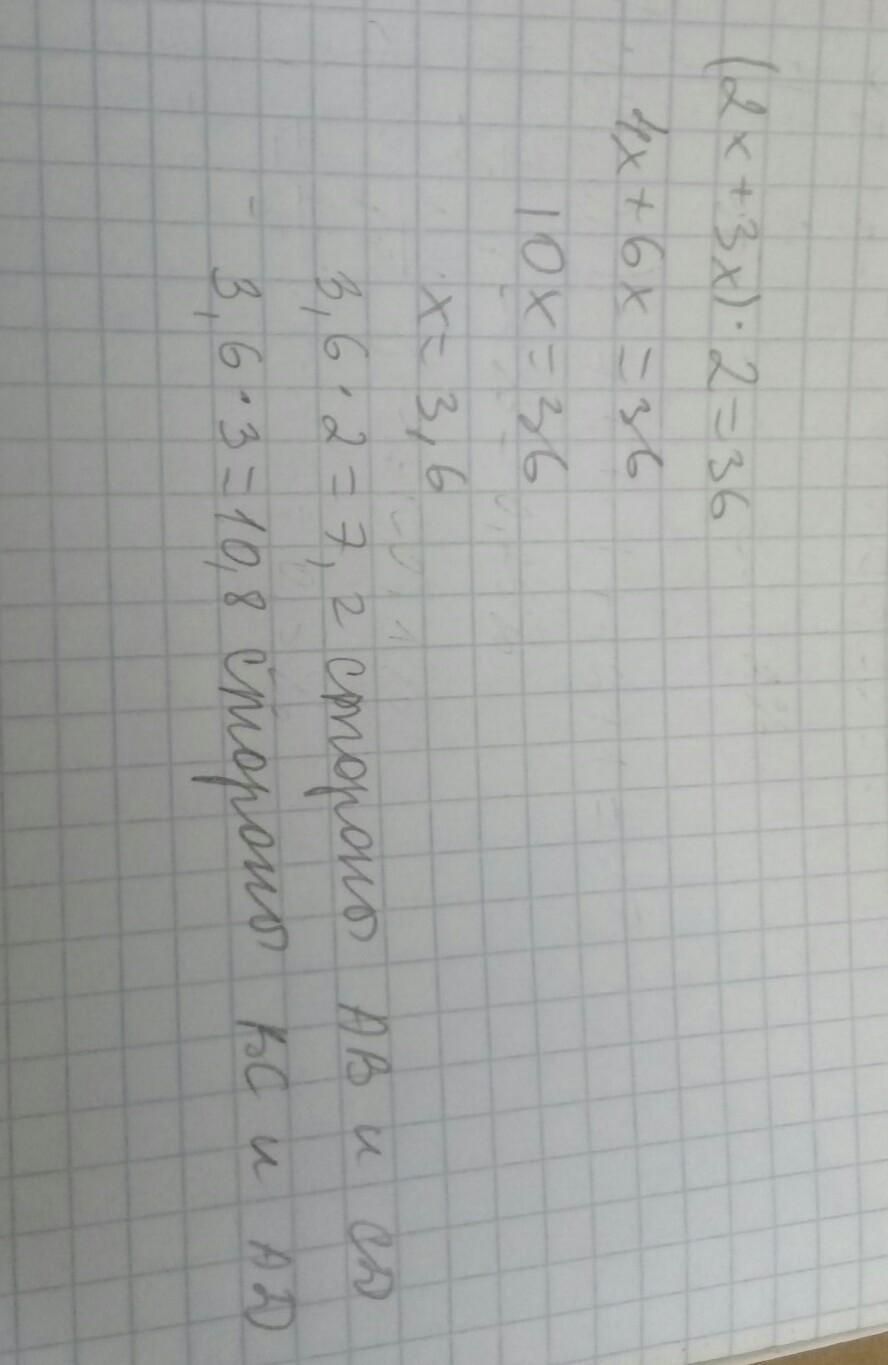 (2x+3x)·2=36
4x+6x=36
10x=36
x=3,6
3,6·2=7,2 стороны AB и CD
3,6·3=10,8 стороны BC и AD